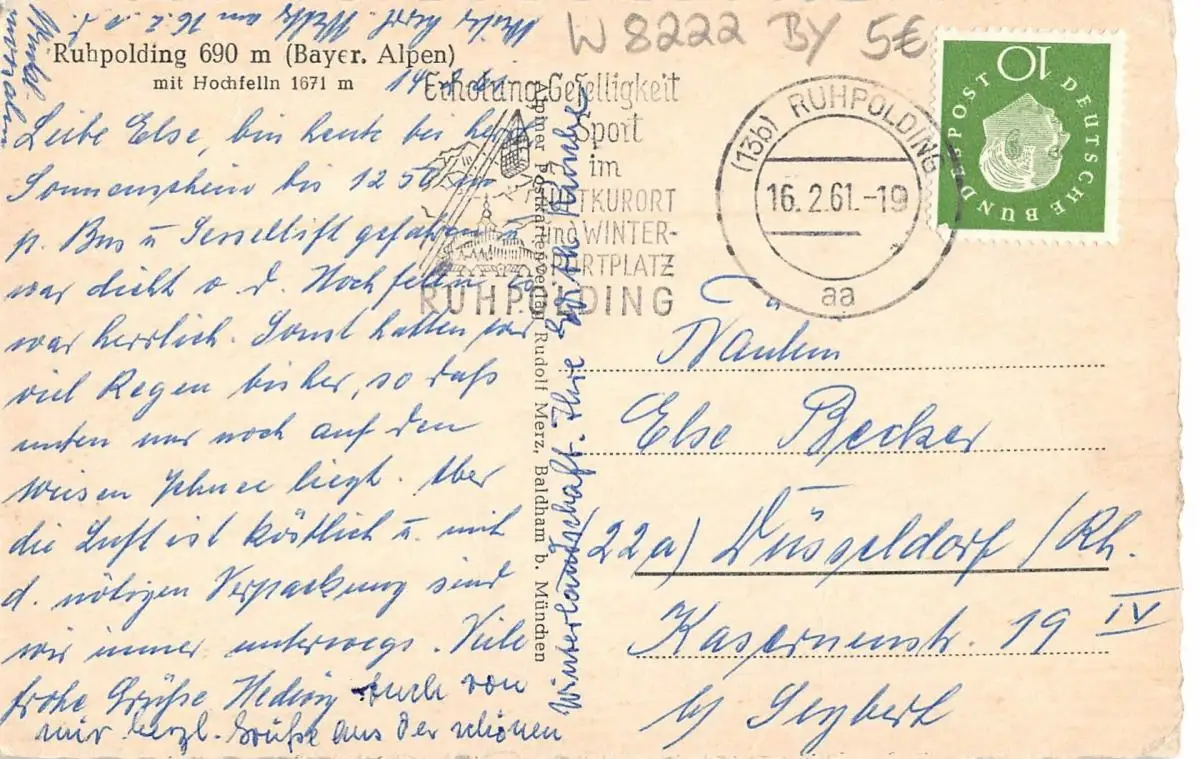 W 8222 BY 5€
Ruhpolding 690 m (Bayer. Alpen)
mit Hochfelln 1671 m
14.2.61
Leibe Else, bin heute bei herrl.
Sonnenschein bis 1250 m
p. Bus u Sessellift gefahren u
war dicht a. d. Hochfelln. Es
war herrlich. Sonst hatten wir
viel Regen bisher, so daß
unten nur noch auf den
Wiesen Schnee liegt. Aber
die Luft ist köstlich u. mit
d. nötigen Verpackung sind
wir immer unterwegs. Viele
frohe Grüße Hedwig Auch von
mir herzl. Grüße aus der schönen
Winterlandschaft. Ihre Edith
Alpiner Postkartenverlag Rudolf Merz, Baldham b. München
Erholung-Geselligkeit
Sport
im
LUFTKURORT
und WINTER-
SPORTPLATZ
RUHPOLDING
(13b) RUHPOLDING
16.2.61.-19
aa
DEUTSCHE BUNDESPOST
10
Else Becker
(22a) Düsseldorf/Rh.
Kasernenstr. 19 IV
b/ Seybert